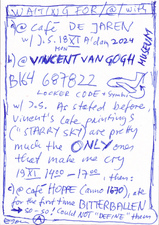 WAITING FOR/@/WITH
a) @ café DE JAREN
w/ J.S. 18 XI A'dam 2024
MON
b) @ VINCENT VAN GOGH
MUSEUM
B164 687822
LOCKER CODE + Symbol
w/ J.S. As stated before,
Vincent's café paintings
("STARRY SKY") are pretty
much the ONLY ones
that make me cry
19 XI 14:00 - 17:00, then:
c) @ café HOPPE (anno 1670), ate
for the first time BITTERBALLEN
→ so-so! Could NOT "DEFINE" them